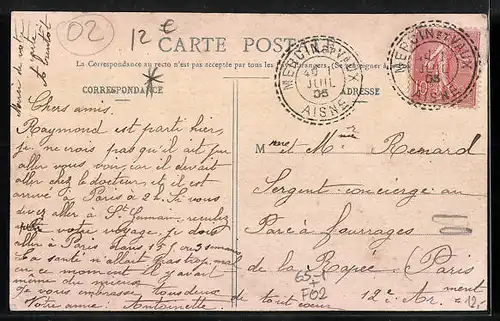 02
12 €
CARTE POSTALE
La Correspondance au recto n'est pas acceptée par tous les pays étrangers. (Se renseigner à la Poste)
CORRESPONDANCE
ADRESSE
MERCIN ET VAUX
JUIL
05
AISNE
MERCIN ET VAUX
05
AISNE
10
Merci de votre
carte
à bientôt
Chers amis.
Raymond est parti hier,
je ne crois pas qu'il ait pu
aller vous voir, car il devait
aller chez le docteur, et il est
arrivé à Paris à 2h. Si vous
devez aller à St Germain, reculez
votre voyage, je dois
aller à Paris dans 15j ou 3 semaines
La santé n'allait pas trop mal
en ce moment il y avait
même du mieux.
Je vous embrasse tous deux de tout cœur
Votre amie : Antoinette
M et Mme Renard
Sergent-concierge au
Parc à fourrages
de la Rapée (Paris
12e Ar ment
65+
F02
12,